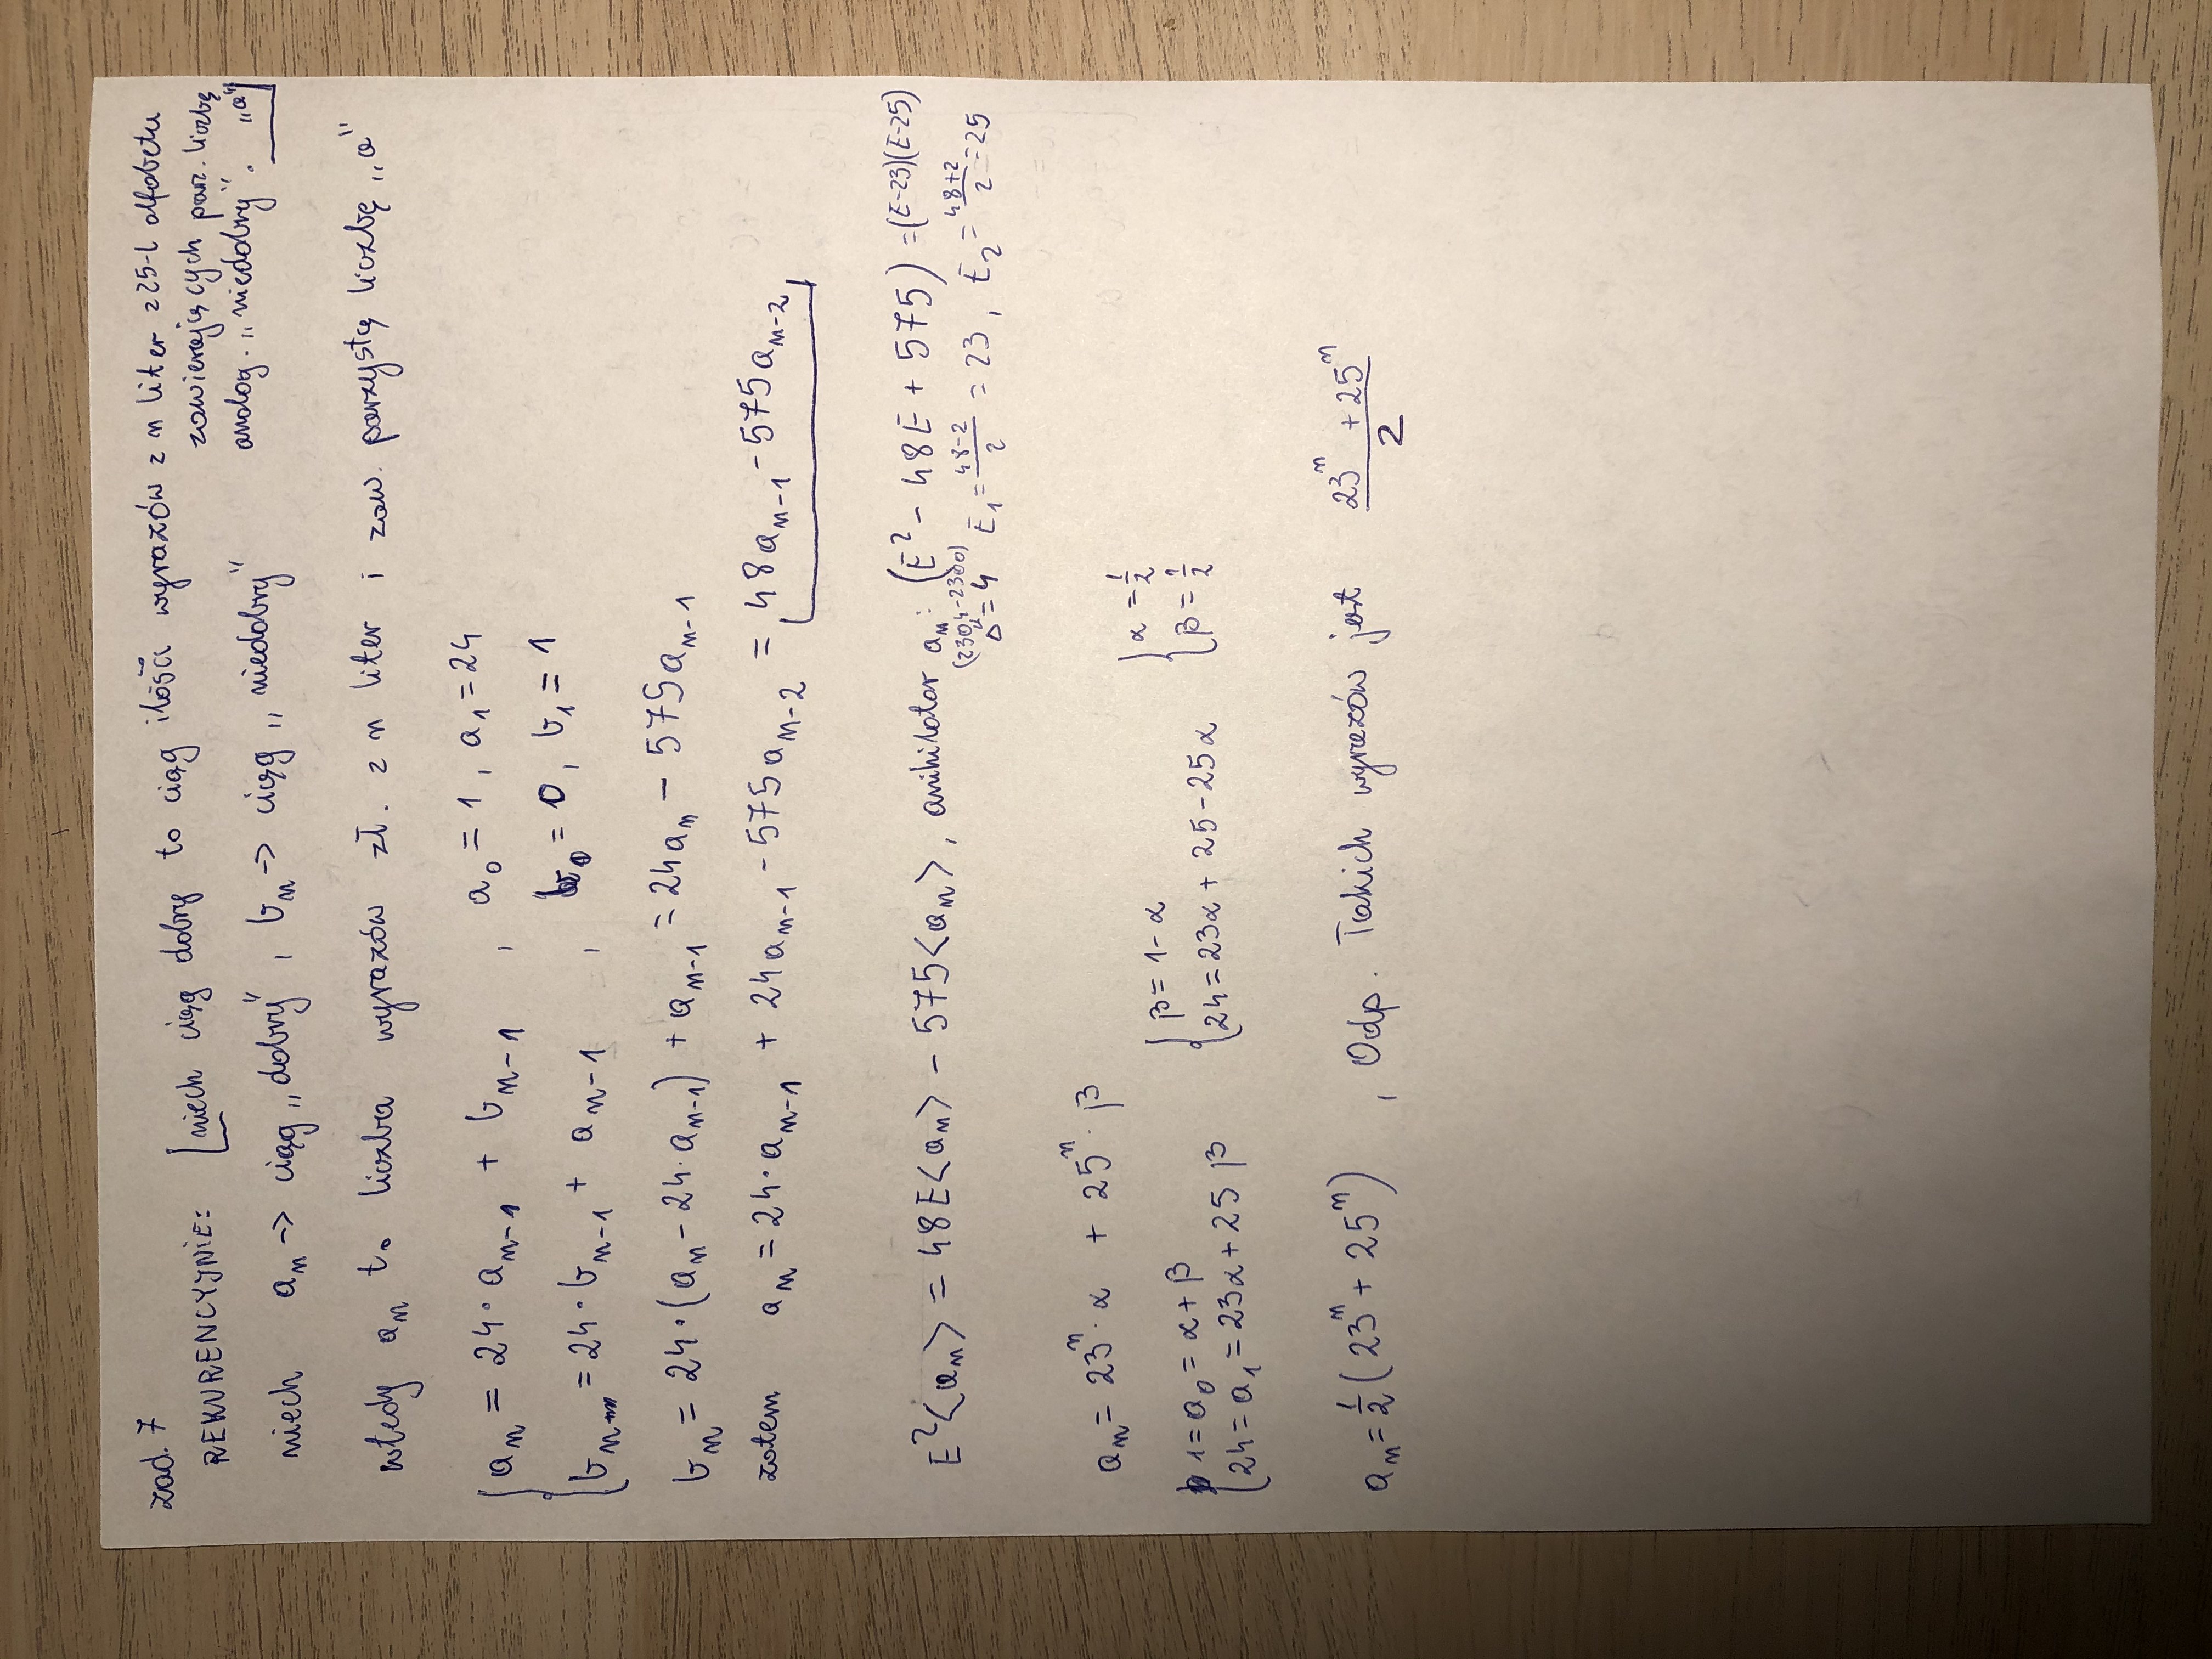 zad. 7
REKURENCYJNIE: niech ciąg dobry to ciąg ilości wyrazów z n liter z 25-l alfabetu
zawierających parz. liczbę „a”
analog. „niedobry”.
niech a_n -> ciąg „dobry”, b_n -> ciąg „niedobry”
wtedy a_n to liczba wyrazów zł. z n liter i zaw. parzystą liczbę „a”
a_n = 24·a_{n-1} + b_{n-1} , a_0 = 1, a_1 = 24
b_n = 24·b_{n-1} + a_{n-1} , b_0 = 0, b_1 = 1
b_n = 24·(a_n - 24·a_{n-1}) + a_{n-1} = 24a_n - 575a_{n-1}
zatem a_n = 24·a_{n-1} + 24a_{n-1} - 575a_{n-2} = 48a_{n-1} - 575a_{n-2}
E²<a_n> = 48E<a_n> - 575<a_n>, anihilator a_n: (E² - 48E + 575) = (E-23)(E-25)
(2304-2300)
Δ = 4 E_1 = (48-2)/2 = 23, E_2 = (48+2)/2 = 25
a_n = 23^n·α + 25^n·β
1 = a_0 = α + β
24 = a_1 = 23α + 25β
β = 1 - α
24 = 23α + 25 - 25α
α = 1/2
β = 1/2
a_n = 1/2(23^n + 25^n) , Odp. Takich wyrazów jest (23^n + 25^n)/2